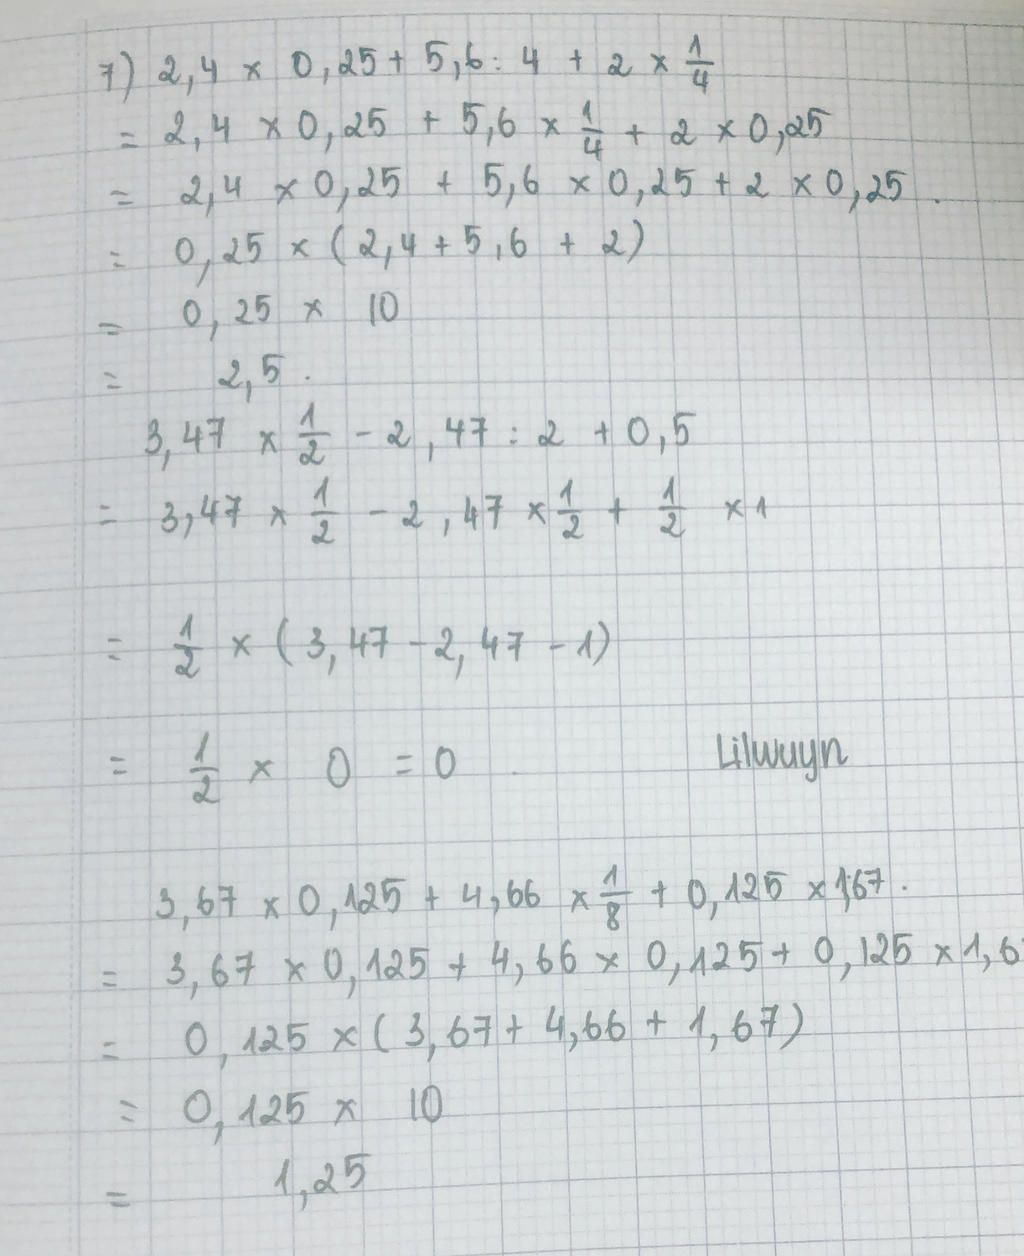 7) 2,4 × 0,25 + 5,6 : 4 + 2 × 1/4
= 2,4 × 0,25 + 5,6 × 1/4 + 2 × 0,25
= 2,4 × 0,25 + 5,6 × 0,25 + 2 × 0,25.
= 0,25 × (2,4 + 5,6 + 2)
= 0,25 × 10
= 2,5.
3,47 × 1/2 - 2,47 : 2 + 0,5
= 3,47 × 1/2 - 2,47 × 1/2 + 1/2 × 1
= 1/2 × (3,47 - 2,47 - 1)
= 1/2 × 0 = 0
Lilwuyn
3,67 × 0,125 + 4,66 × 1/8 + 0,125 × 1,67.
= 3,67 × 0,125 + 4,66 × 0,125 + 0,125 × 1,6
= 0,125 × (3,67 + 4,66 + 1,67)
= 0,125 × 10
= 1,25